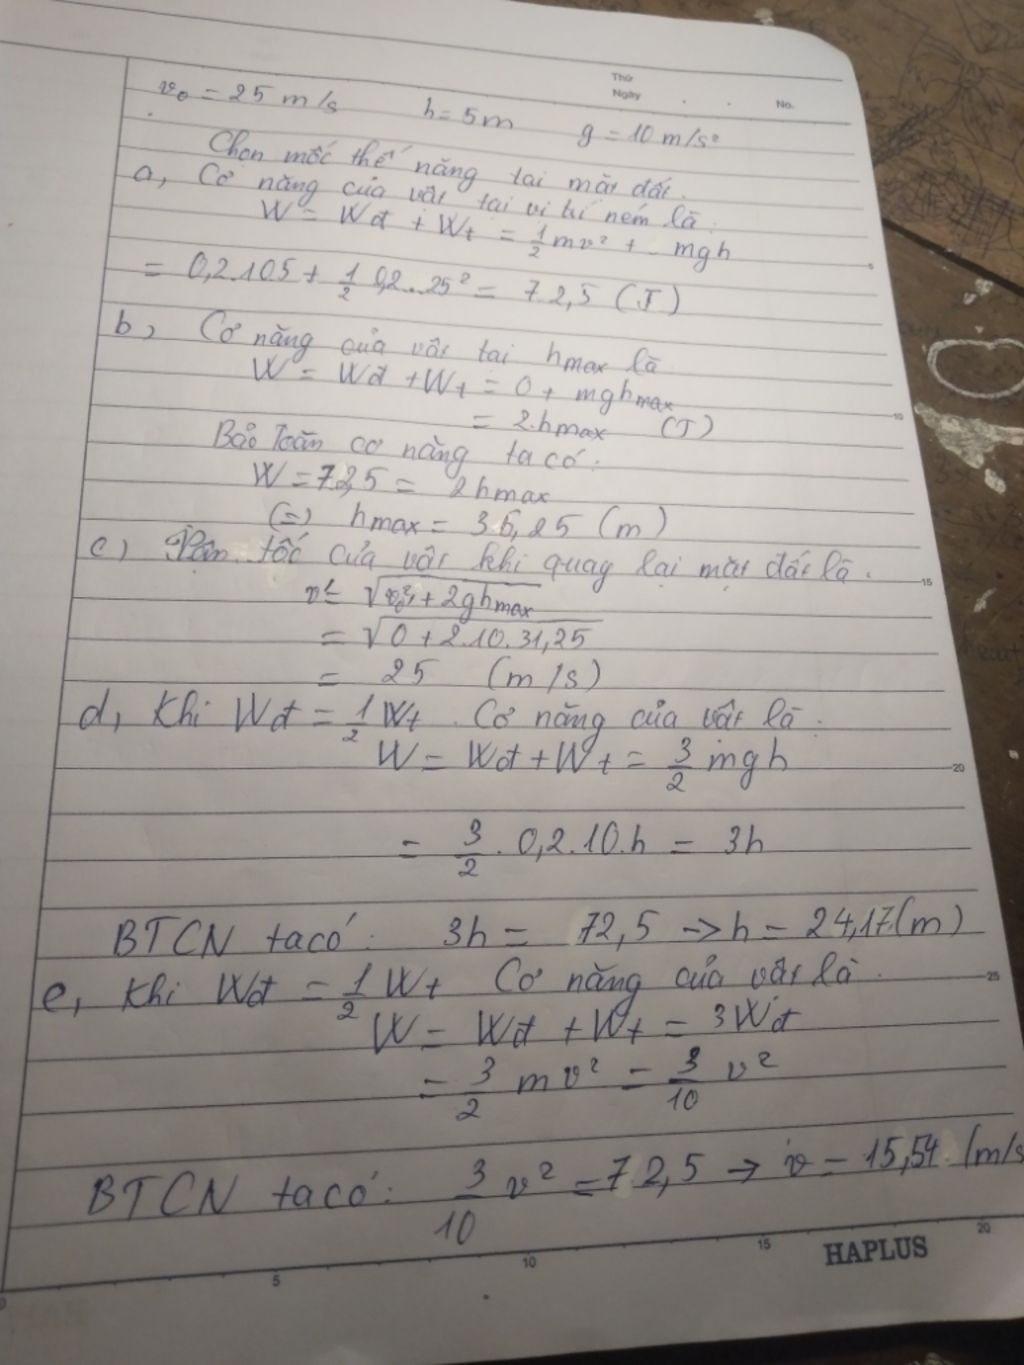 Thứ
Ngày
No.
v₀ = 25 m/s h = 5m g = 10 m/s²
Chọn mốc thế năng tại mặt đất.
a, Cơ năng của vật tại vị trí ném là:
W = Wđ + Wt = 1/2 mv² + mgh
= 0,2.10.5 + 1/2 0,2..25² = 72,5 (J)
b, Cơ năng của vật tại hmax là
W = Wđ + Wt = 0 + mghmax
= 2.hmax (J)
Bảo toàn cơ năng ta có:
W = 72,5 = 2hmax
(=) hmax = 36,25 (m)
c) Vận tốc của vật khi quay lại mặt đất là.
v = √(v₀² + 2ghmax)
= √(0 + 2.10.31,25)
= 25 (m/s)
d, Khi Wđ = 1/2 Wt. Cơ năng của vật là.
W = Wđ + Wt = 3/2 mgh
= 3/2 . 0,2.10.h = 3h
BTCN ta có: 3h = 72,5 -> h = 24,17(m)
e, Khi Wđ = 1/2 Wt Cơ năng của vật là.
W = Wđ + Wt = 3Wđ
= 3/2 mv² = 3/10 v²
BTCN ta có: 3/10 v² = 72,5 -> v = 15,54 (m/s
HAPLUS